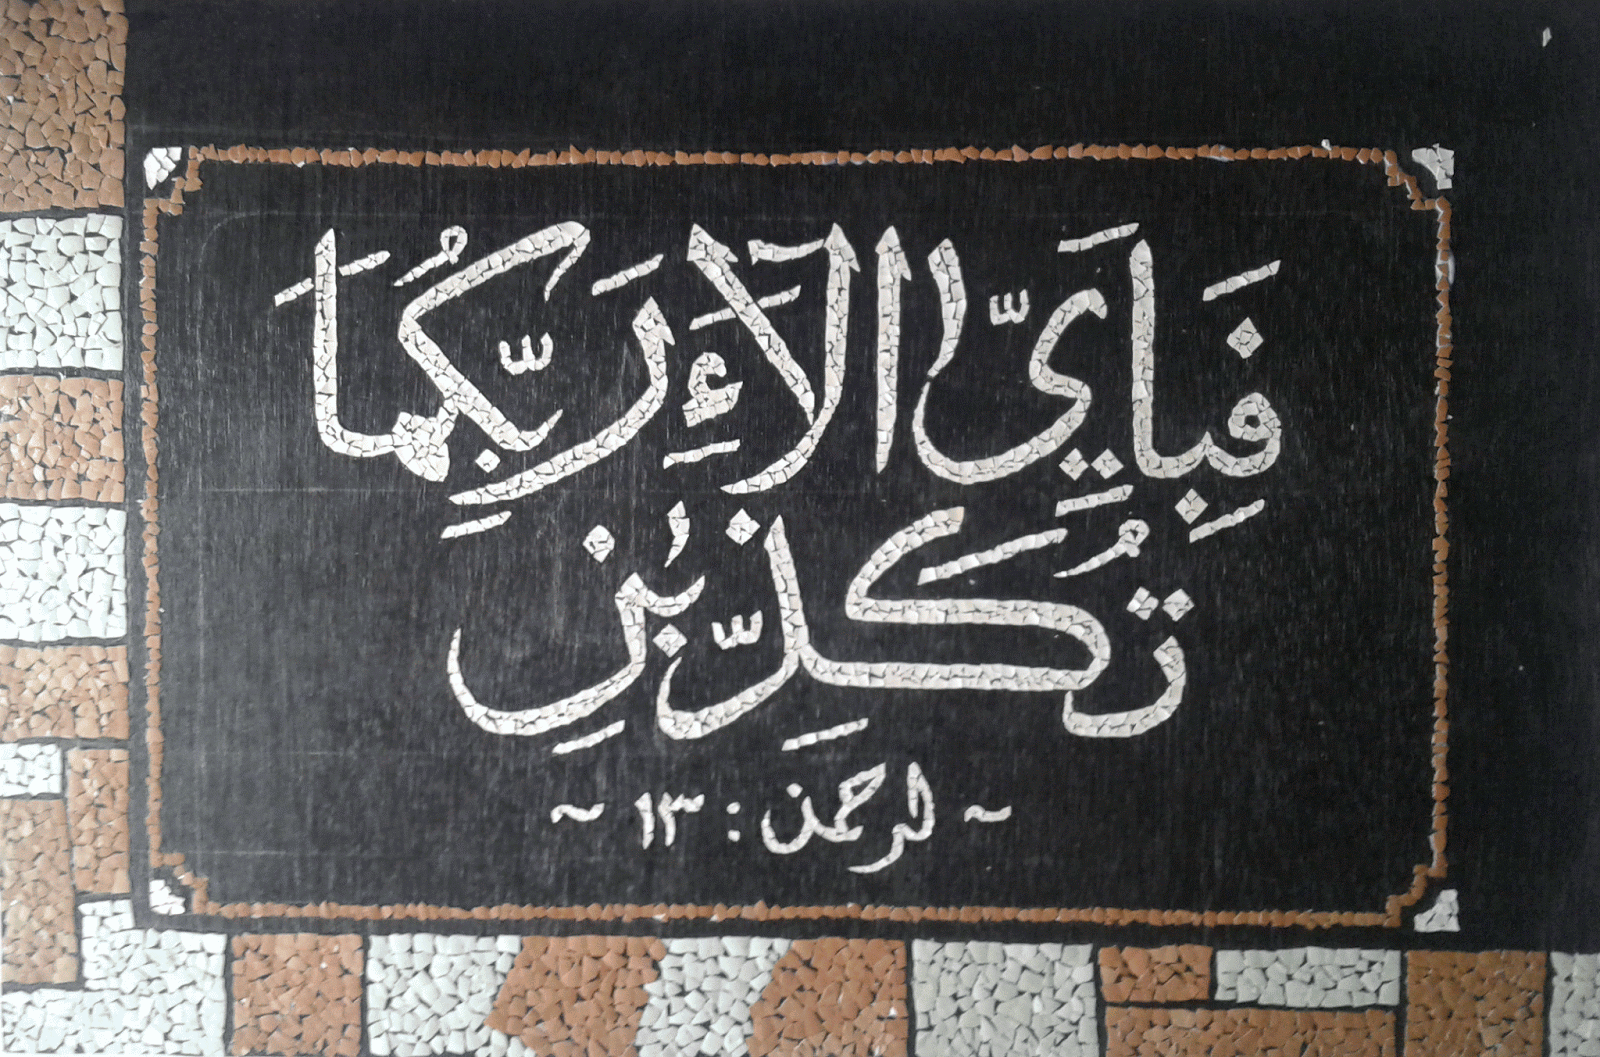 فَبِاَيِّ الَآءِ رَبِّكُمَا
تُكَذِّبٰنِ
~ الرحمن : ١٣ ~